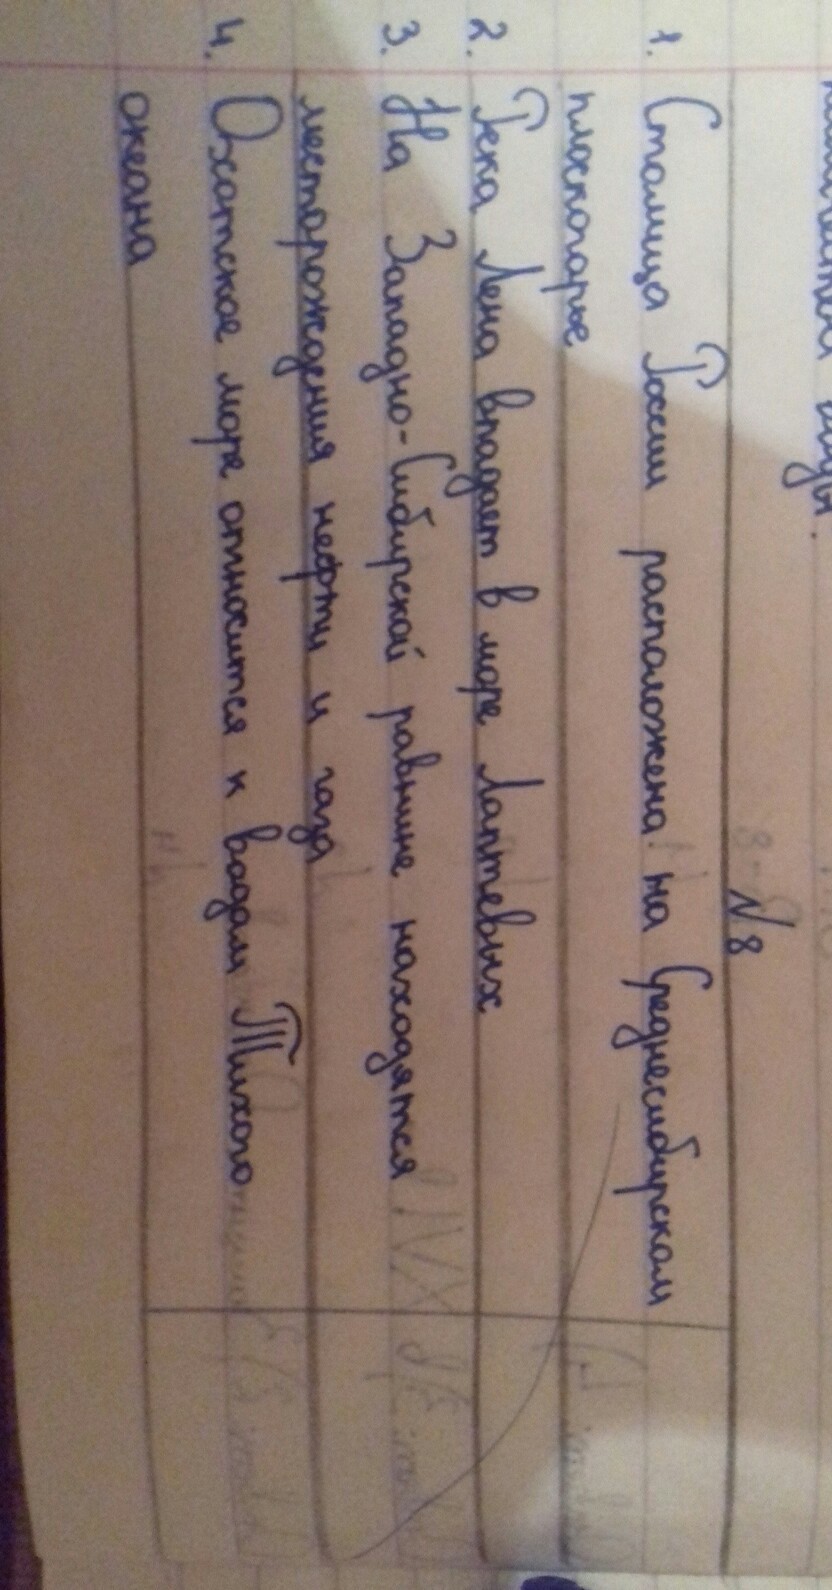 №8
1. Столица России расположена на Среднесибирском
плоскогорье
2. Река Лена впадает в море Лаптевых
3. На Западно-Сибирской равнине находятся
месторождения нефти и газа
4. Охотское море относится к водам Тихого
океана